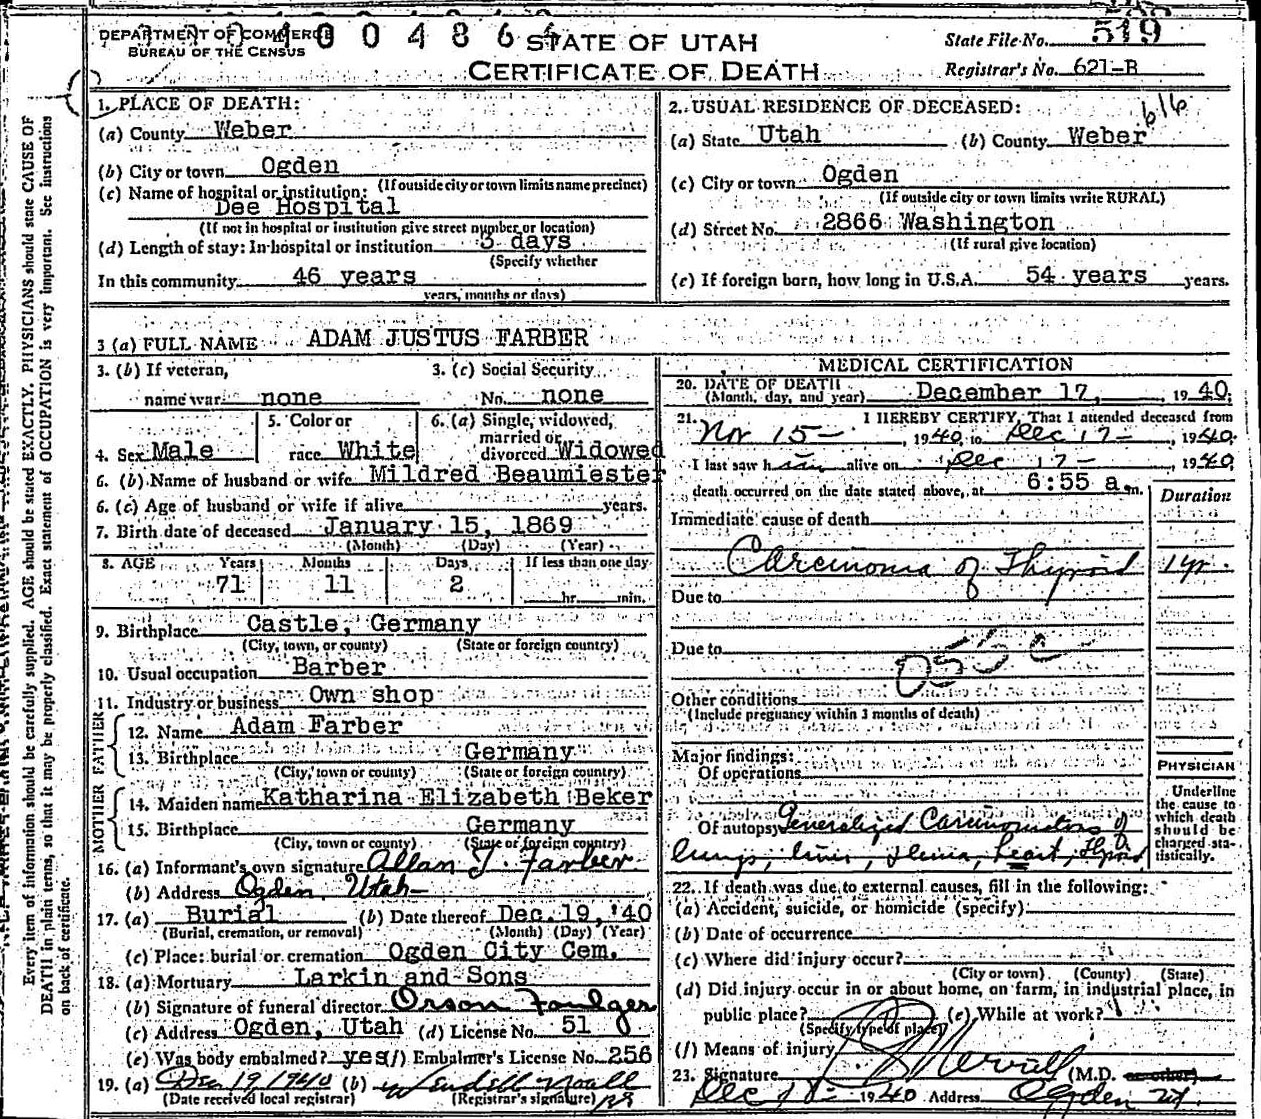 DEPARTMENT OF COMMERCE
BUREAU OF THE CENSUS
0400486
STATE OF UTAH
CERTIFICATE OF DEATH
State File No. 519
Registrar's No. 621-B
1. PLACE OF DEATH:
(a) County Weber
(b) City or town Ogden
(If outside city or town limits name precinct)
(c) Name of hospital or institution:
Dee Hospital
(If not in hospital or institution give street number or location)
(d) Length of stay: In hospital or institution 3 days
(Specify whether
In this community 46 years
years, months or days)
2. USUAL RESIDENCE OF DECEASED:
616
(a) State Utah (b) County Weber
(c) City or town Ogden
(If outside city or town limits write RURAL)
(d) Street No. 2866 Washington
(If rural give location)
(e) If foreign born, how long in U.S.A. 54 years years.
3 (a) FULL NAME ADAM JUSTUS FARBER
3. (b) If veteran,
name war none
3. (c) Social Security
No. none
4. Sex Male
5. Color or
race White
6. (a) Single, widowed,
married or
divorced Widowed
6. (b) Name of husband or wife Mildred Beaumiester
6. (c) Age of husband or wife if alive years.
7. Birth date of deceased January 15, 1869
(Month) (Day) (Year)
8. AGE Years Months Days If less than one day
71 11 2 hr. min.
9. Birthplace Castle, Germany
(City, town, or county) (State or foreign country)
10. Usual occupation Barber
11. Industry or business Own shop
FATHER
12. Name Adam Farber
13. Birthplace Germany
(City, town or county) (State or foreign country)
MOTHER
14. Maiden name Katharina Elizabeth Beker
15. Birthplace Germany
(City, town or county) (State or foreign country)
16. (a) Informant's own signature Allan J. Farber
(b) Address Ogden, Utah
17. (a) Burial (b) Date thereof Dec. 19, '40
(Burial, cremation, or removal) (Month) (Day) (Year)
(c) Place: burial or cremation Ogden City Cem.
18. (a) Mortuary Larkin and Sons
(b) Signature of funeral director Orson Foulger
(c) Address Ogden, Utah (d) License No. 51
(e) Was body embalmed? yes (f) Embalmer's License No. 256
19. (a) Dec 19 1940 (b) Wendell Noall
(Date received local registrar) (Registrar's signature)
MEDICAL CERTIFICATION
20. DATE OF DEATH
(Month, day, and year) December 17, 1940.
21. I HEREBY CERTIFY, That I attended deceased from
Nov 15 - , 1940, to Dec 17 - , 1940.
I last saw him alive on Dec 17 - , 1940
death occurred on the date stated above, at 6:55 a. m.
Duration
Immediate cause of death
Carcinoma of Thyroid 1 yr.
Due to
Due to
055 c
Other conditions
(Include pregnancy within 3 months of death)
Major findings:
Of operations
PHYSICIAN
Underline
the cause to
which death
should be
charged sta-
tistically.
Of autopsy Generalized Carcinomatosis of
lungs, liver, heart, Thyroid
22. If death was due to external causes, fill in the following:
(a) Accident, suicide, or homicide (specify)
(b) Date of occurrence
(c) Where did injury occur?
(City or town) (County) (State)
(d) Did injury occur in or about home, on farm, in industrial place, in
public place? (e) While at work?
(Specify type of place)
(f) Means of injury
23. Signature Merrill (M.D. or other)
Dec 18 - 1940 Address Ogden Ut
Every item of information should be carefully supplied. AGE should be stated EXACTLY. PHYSICIANS should state CAUSE OF
DEATH in plain terms, so that it may be properly classified. Exact statement of OCCUPATION is very important. See instructions
on back of certificate.